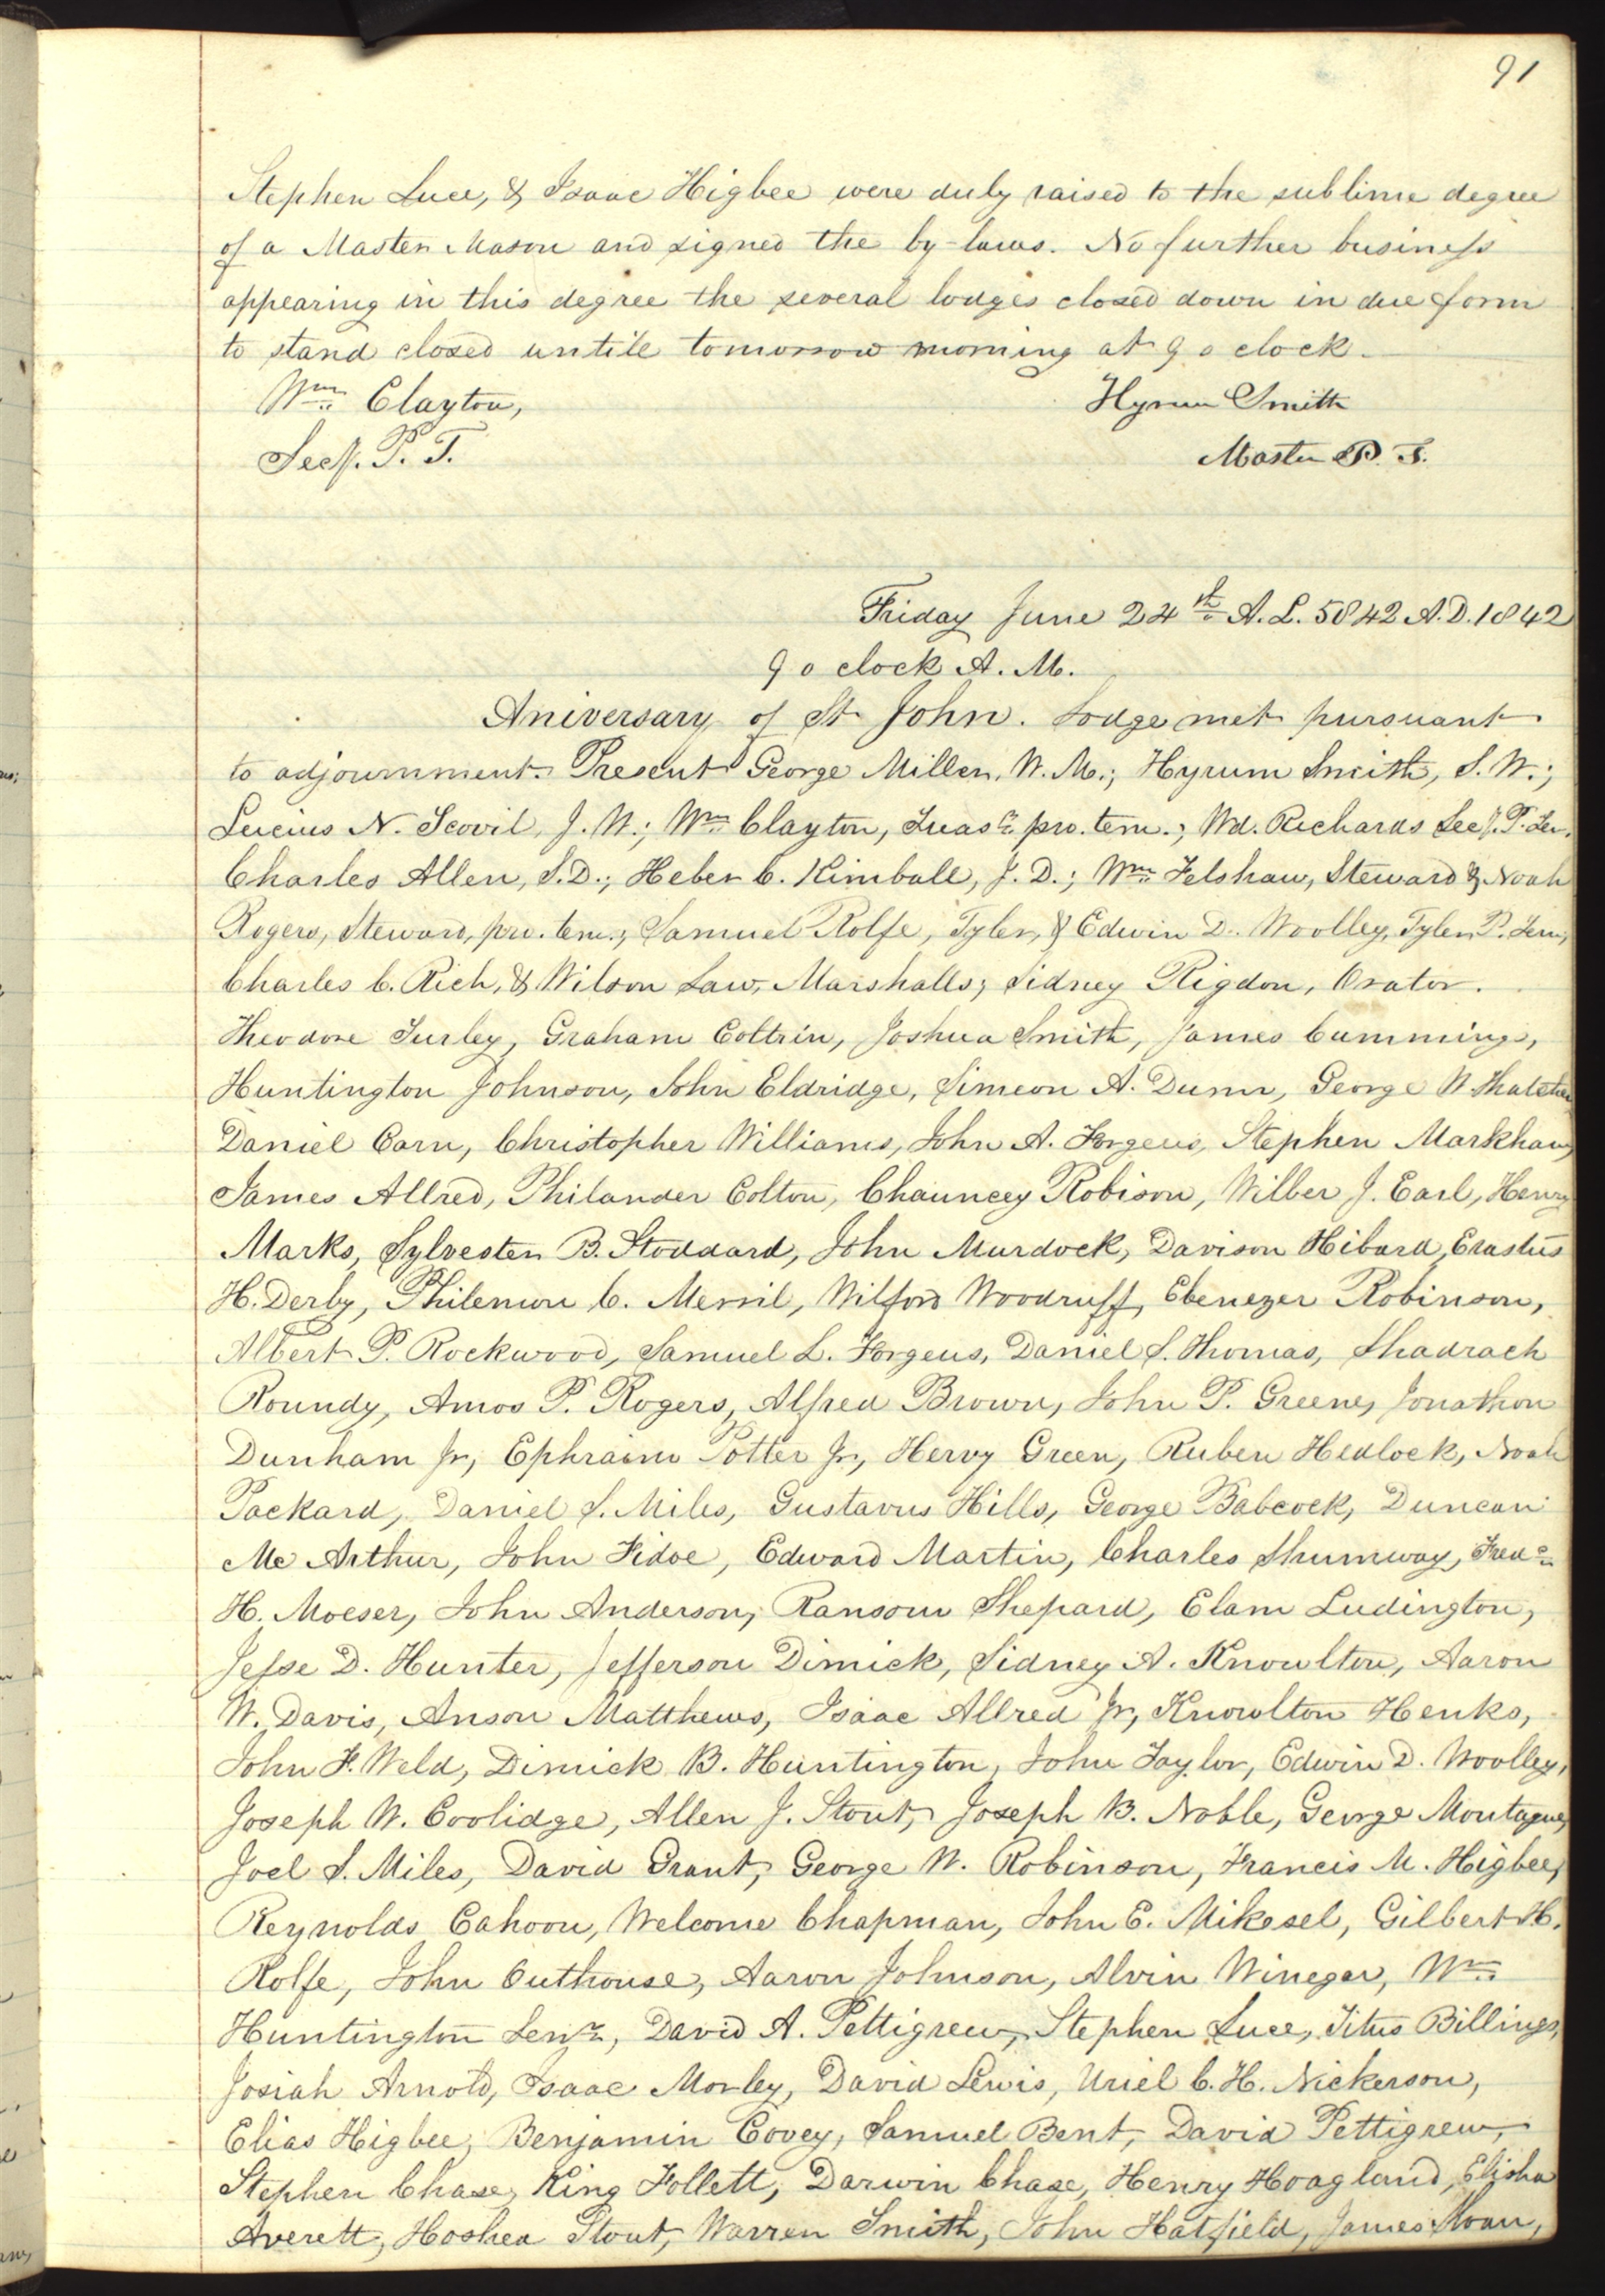 91
Stephen Luce, & Isaac Higbee were duly raised to the sublime degree
of a Master Mason and signed the by-laws. No further business
appearing in this degree the several lodges closed down in due form
to stand closed untill tomorrow morning at 9 o clock.
Wm Clayton, Hyrum Smith
Secy. P. T. Master P. T.
Friday June 24th A. L. 5842 A. D. 1842
9 o clock A. M.
Aniversary of St John. Lodge met pursuant
to adjournment. Present George Miller, W. M.; Hyrum Smith, S. W.;
Lucius N. Scovil, J. W.; Wm Clayton, Treasr pro. tem.; Wd. Richards Secy. P. Tem.
Charles Allen, S. D.; Heber C. Kimball, J. D.; Wm Felshaw, Steward & Noah
Rogers, Steward, pro. tem.; Samuel Rolfe, Tyler, & Edwin D. Woolley, Tyler P. Tem;
Charles C. Rich, & Wilson Law, Marshalls; Sidney Rigdon, Orator.
Theodore Turley, Graham Coltrin, Joshua Smith, James Cummings,
Huntington Johnson, John Eldridge, Simeon A. Dunn, George W. Thatcher
Daniel Carn, Christopher Williams, John A. Forgeus, Stephen Markham,
James Allred, Philander Colton, Chauncey Robison, Wilber J. Earl, Henry
Marks, Sylvester B. Stoddard, John Murdock, Davison Hibard, Erastus
H. Derby, Philemon C. Merril, Wilford Woodruff, Ebenezer Robinson,
Albert P. Rockwood, Samuel L. Forgeus, Daniel S. Thomas, Shadrach
Roundy, Amos P. Rogers, Alfred Brown, John P. Greene, Jonathon
Dunham Jr, Ephraim Potter Jr, Hervy Green, Ruben Hedlock, Noah
Packard, Daniel S. Miles, Gustavus Hills, George Babcock, Duncan
Mc Arthur, John Fidoe, Edward Martin, Charles Shumway, Fredc
H. Moeser, John Anderson, Ransom Shepard, Elam Ludington,
Jesse D. Hunter, Jefferson Dimick, Sidney A. Knowlton, Aaron
W. Davis, Anson Matthews, Isaac Allred Jr, Knowlton Henks,
John F. Weld, Dimick B. Huntington, John Taylor, Edwin D. Woolley,
Joseph W. Coolidge, Allen J. Stout, Joseph B. Noble, George Montague,
Joel S. Miles, David Grant, George W. Robinson, Francis M. Higbee,
Reynolds Cahoon, Welcome Chapman, John E. Mikesel, Gilbert H.
Rolfe, John Outhouse, Aaron Johnson, Alvin Winegar, Wm
Huntington Senr, David A. Pettigrew, Stephen Luce, Titus Billings,
Josiah Arnold, Isaac Morley, David Lewis, Uriel C. H. Nickerson,
Elias Higbee, Benjamin Covey, Samuel Bent, David Pettigrew,
Stephen Chase, King Follett, Darwin Chase, Henry Hoagland, Elisha
Averett, Hoshea Stout, Warren Smith, John Hatfield, James Sloan,